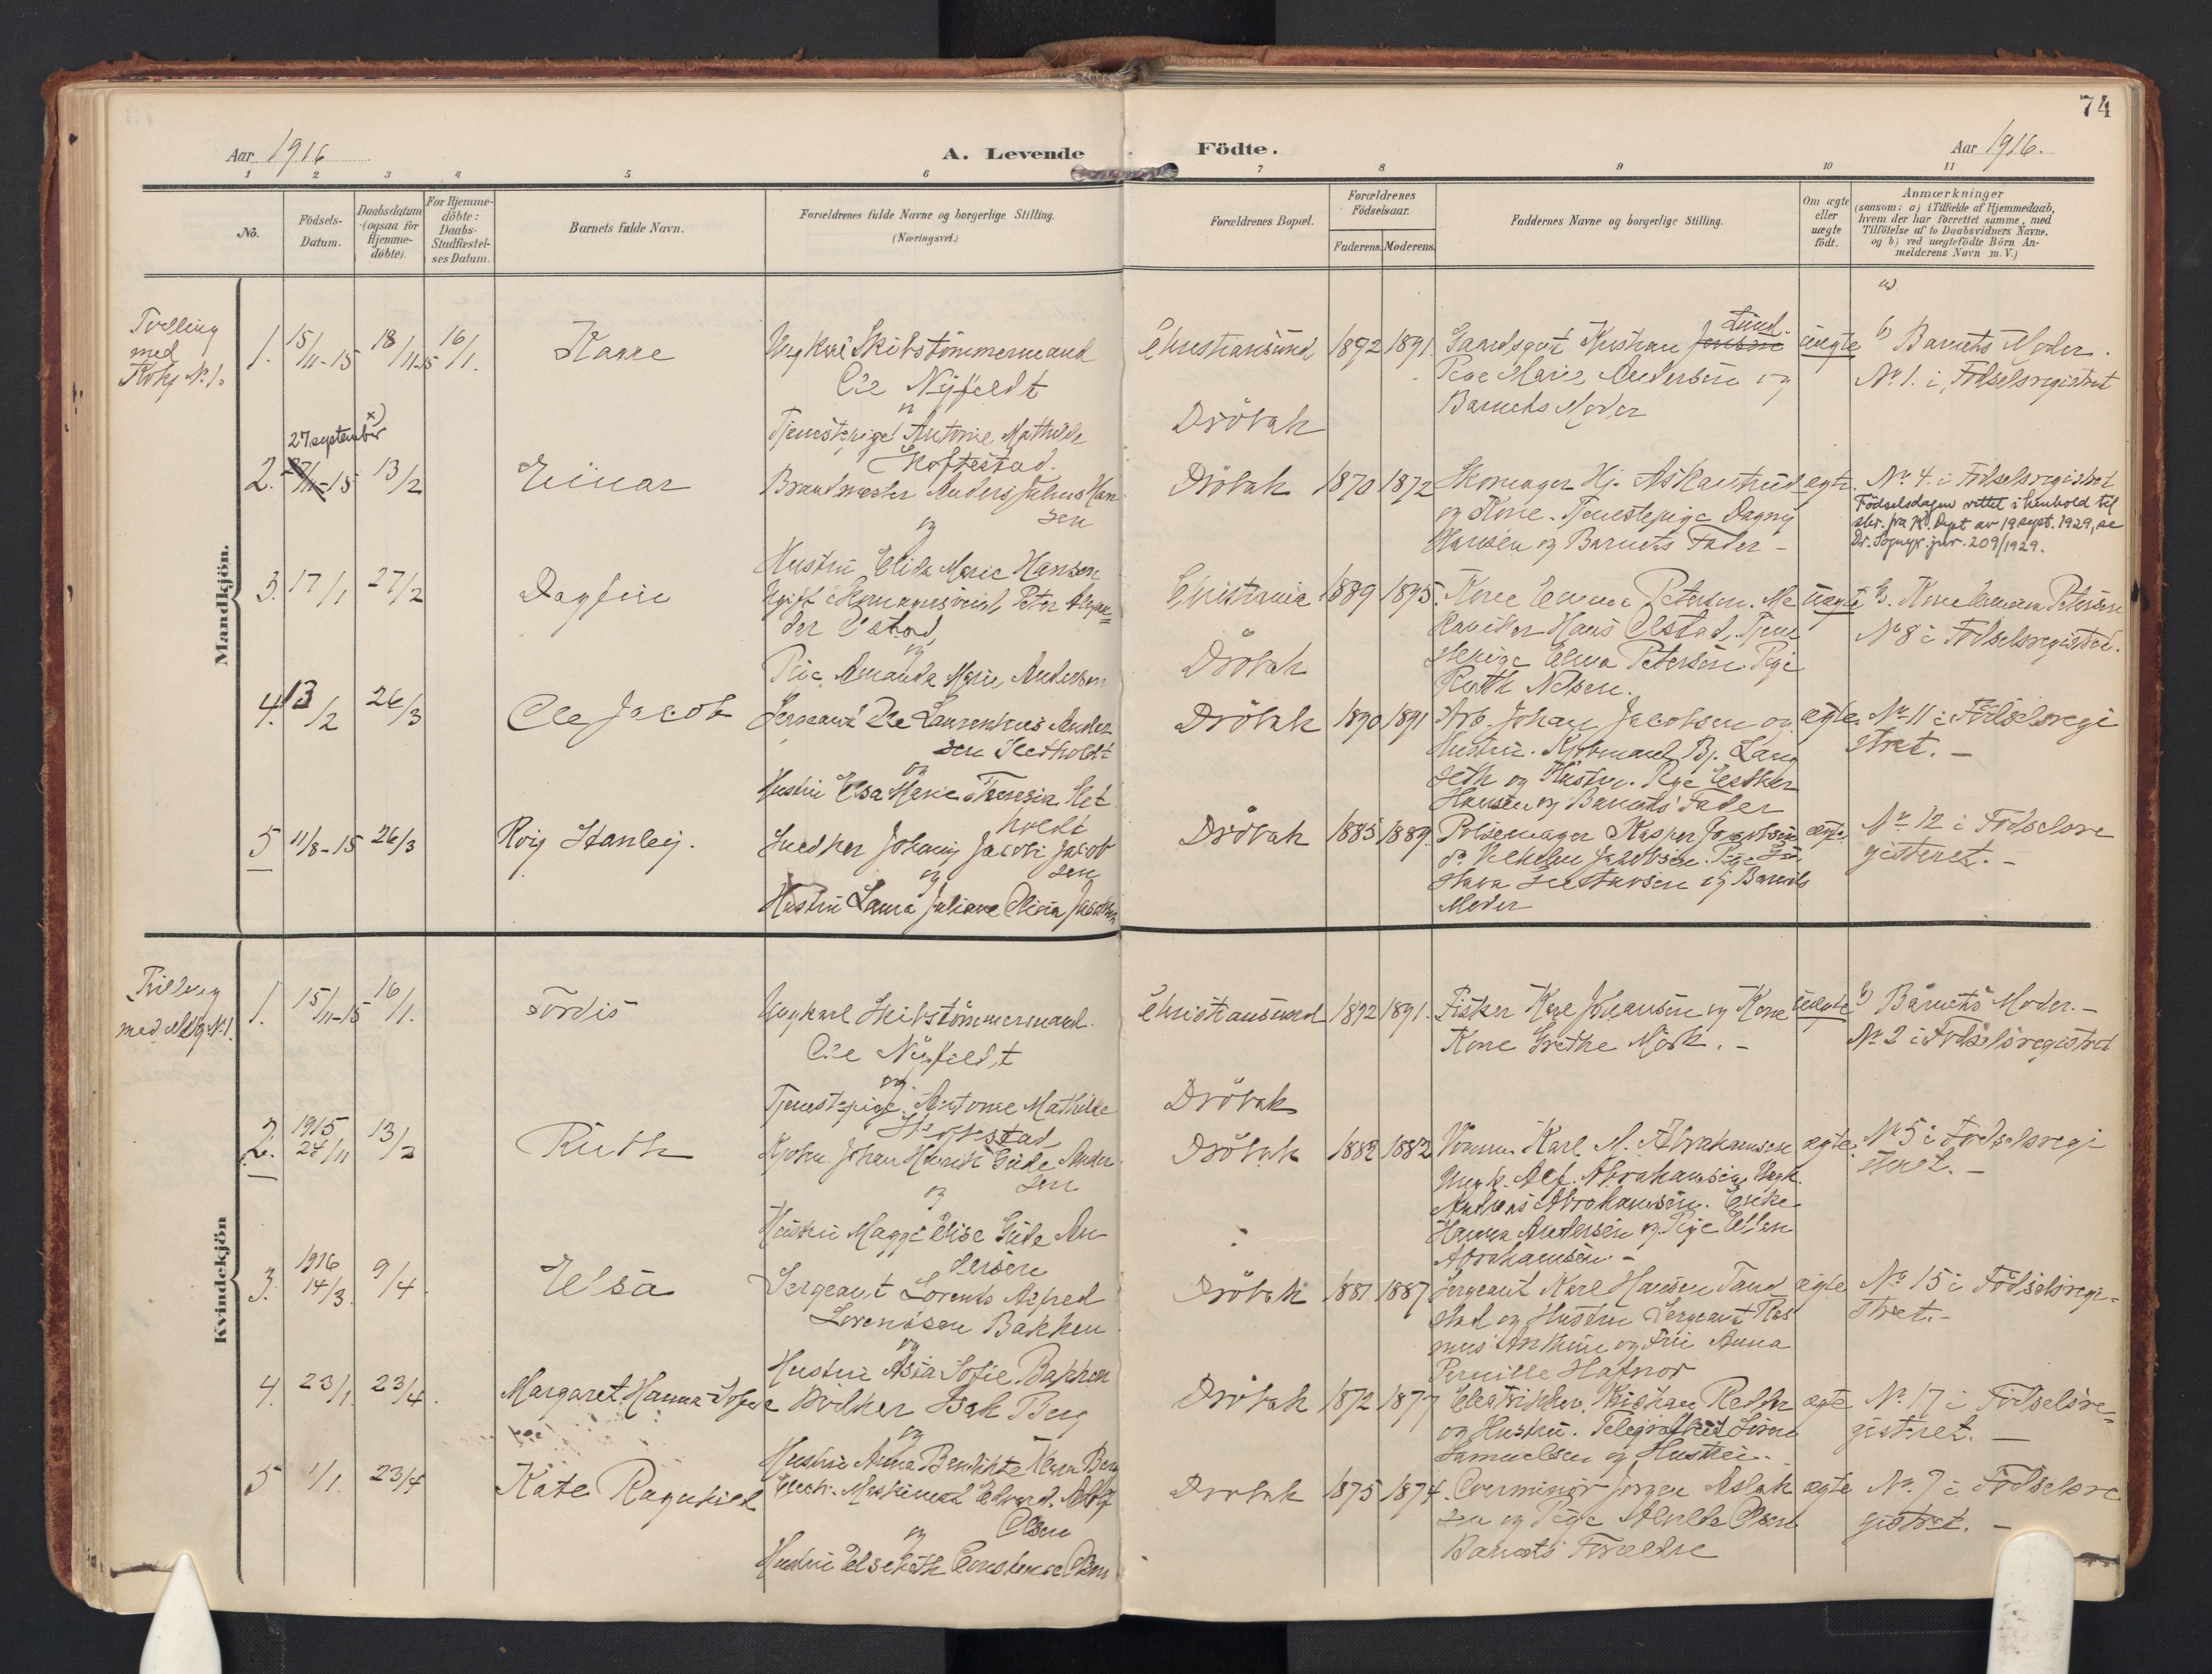 74
Aar 1916
A. Levende Födte.
Aar 1916.
1 2 3 4 5 6 7 8 9 10 11
No.
Födsels-
Datum.
Daabsdatum
(ogsaa for
Hjemme-
döbte).
For Hjemme-
döbte:
Daabs-
Stadfæstel-
ses Datum.
Barnets fulde Navn.
Forældrenes fulde Navne og borgerlige Stilling.
(Næringsvei.)
Forældrenes Bopæl.
Forældrenes
Födselsaar.
Faderens. Moderens.
Faddernes Navne og borgerlige Stilling.
Om ægte
eller
uægte
födt.
Anmærkninger
(saasom: a) i Tilfælde af Hjemmedaab,
hvem der har forrettet samme, med
Tilföielse af to Daabsvidners Navne.
og b) ved uægtefödte Börn An-
melderens Navn m. V.)
Mandkjön.
Tvilling
med
Kvkj No. 1.
1. 15/11-15 18/11-15 16/1. Kaare
Ungkarl Skibstömmermand
Ole Nyfeldt
og
Tjenestepige Antonie Mathilde
Skoftestad.
Christiansund
Dröbak
1892 1891.
Gaardsgut Kristian Jensen Lund
Pige Marie Andersen og
Barnets Moder
uægte
b) Barnets Moder.
No. 1. i Födselsregistret
2. 27/11-15 13/2 Einar
27 september x)
Brandmester Anders Julius Han
sen
og
Hustru Elida Marie Hansen
Dröbak 1870 1872
Skomager Hj. Askautrud
og Kone. Tjenestepige Dagny
Hansen og Barnets Fader -
ægte.
No. 4. i Födselsregistret
Födselsdagen rettet i henhold til
skr. fra K. Dept av 19 sept. 1929, se
Dr. Sognepr. jnr. 209/1929.
3. 17/1 27/2 Dagfin
Ugift Skomagersvend Peter Alexan
der Olstad,
og
Pige Amanda Marie Andersen
Christiania
Dröbak
1889 1895.
Kone Emma Petersen. Me
kaniker Hans Olstad. Tjene
stepige Elna Petersen. Pige
Ruth Nelsen.
uægte
b. Kone Emma Petersen
No 8 i Födselsregistret.
4. 13/2 26/3 Ole Jacob
Sergeant Ole Laurentius Ander
sen Sletholdt
og
Hustru Elsa Marie Theresia Slet
holdt
Dröbak 1890 1891
Arb. Johan Jacobsen og
Hustru. Kjöbmand Bj. Lang
seth og Hustru. Pige Esther
Hansen og Barnets Fader
ægte.
No 11 i Födselsregi
stret. -
5 11/8-15 26/3 Roy Stanley.
Snedker Johannij Jacob Jacob
sen
og
Hustru Laura Juliane Olivia Jacobsen
Dröbak 1885 1889.
Pölsemager Kasper Jacobsen
do Vilhelm Jacobsen. Pige Gu
stava Gustavsen og Barnets
Moder
ægte.
No 12 i Födselsre
gisteret. -
Kvindekjön
Tvilling
med Mkj No. 1.
1. 15/11-15 16/1. Tordis
Ungkarl Skibstömmermand.
Ole Nyfeldt
og.
Tjenestepige Antonie Mathilde
Skoftestad
Christiansund
Dröbak
1892 1891.
Fisker Karl Johansen og Kone
Kone Grethe Mörk. -
uægte
b) Barnets Moder. -
No 2 i Födselsregistret
2. 1915 24/11 13/2 Ruth
Kjöbm. Johan Henrik Gude Ander
sen
og
Hustru Maggi Elise Gude An
dersen
Dröbak 1882 1882
Karl M. Abrahamsen
Ungk. Alf. Abrahamsen, Ungk.
Andreas Abrahamsen. Enke
Hanna Andersen og Pige Ellen
Abrahamsen. -
ægte.
No 5 i Födselsregi
steret. -
3. 1916 14/3. 9/4. Elsa
Sergeant Lorents Alfred
Lorensen Bakken
og
Hustru Asia Sofie Bakken
Dröbak 1881 1887
Sergeant Karl Hansen Tand
stad og Hustru Sergeant Ras
mus Ankine og Fru Anna
Pernille Hafnor
ægte
No 15 i Födselsregi-
stret. -
4. 23/1. 23/4. Margaret Hanna Sofie
Bödker Isak Berg
og
Hustru Anna Bendikte Berg
Dröbak 1872 1877
Elektriker Kristian Redher
og Hustru. Telegrafist
Samuelsen og Hustru.
ægte
No. 17 i Födselsre-
gistret. -
5 1/1. 23/4 Kate Ragnhild
Elektr. Maskinist Edvard Adolf
Olsen
og
Hustru Elsebeth Constance Olsen
Drobak 1875 1874.
Overminör Jörgen Aslak
sen og Pige Alvilde Olsen
Barnets Forældre
ægte
No. 7 i Födselsre
gistret. -